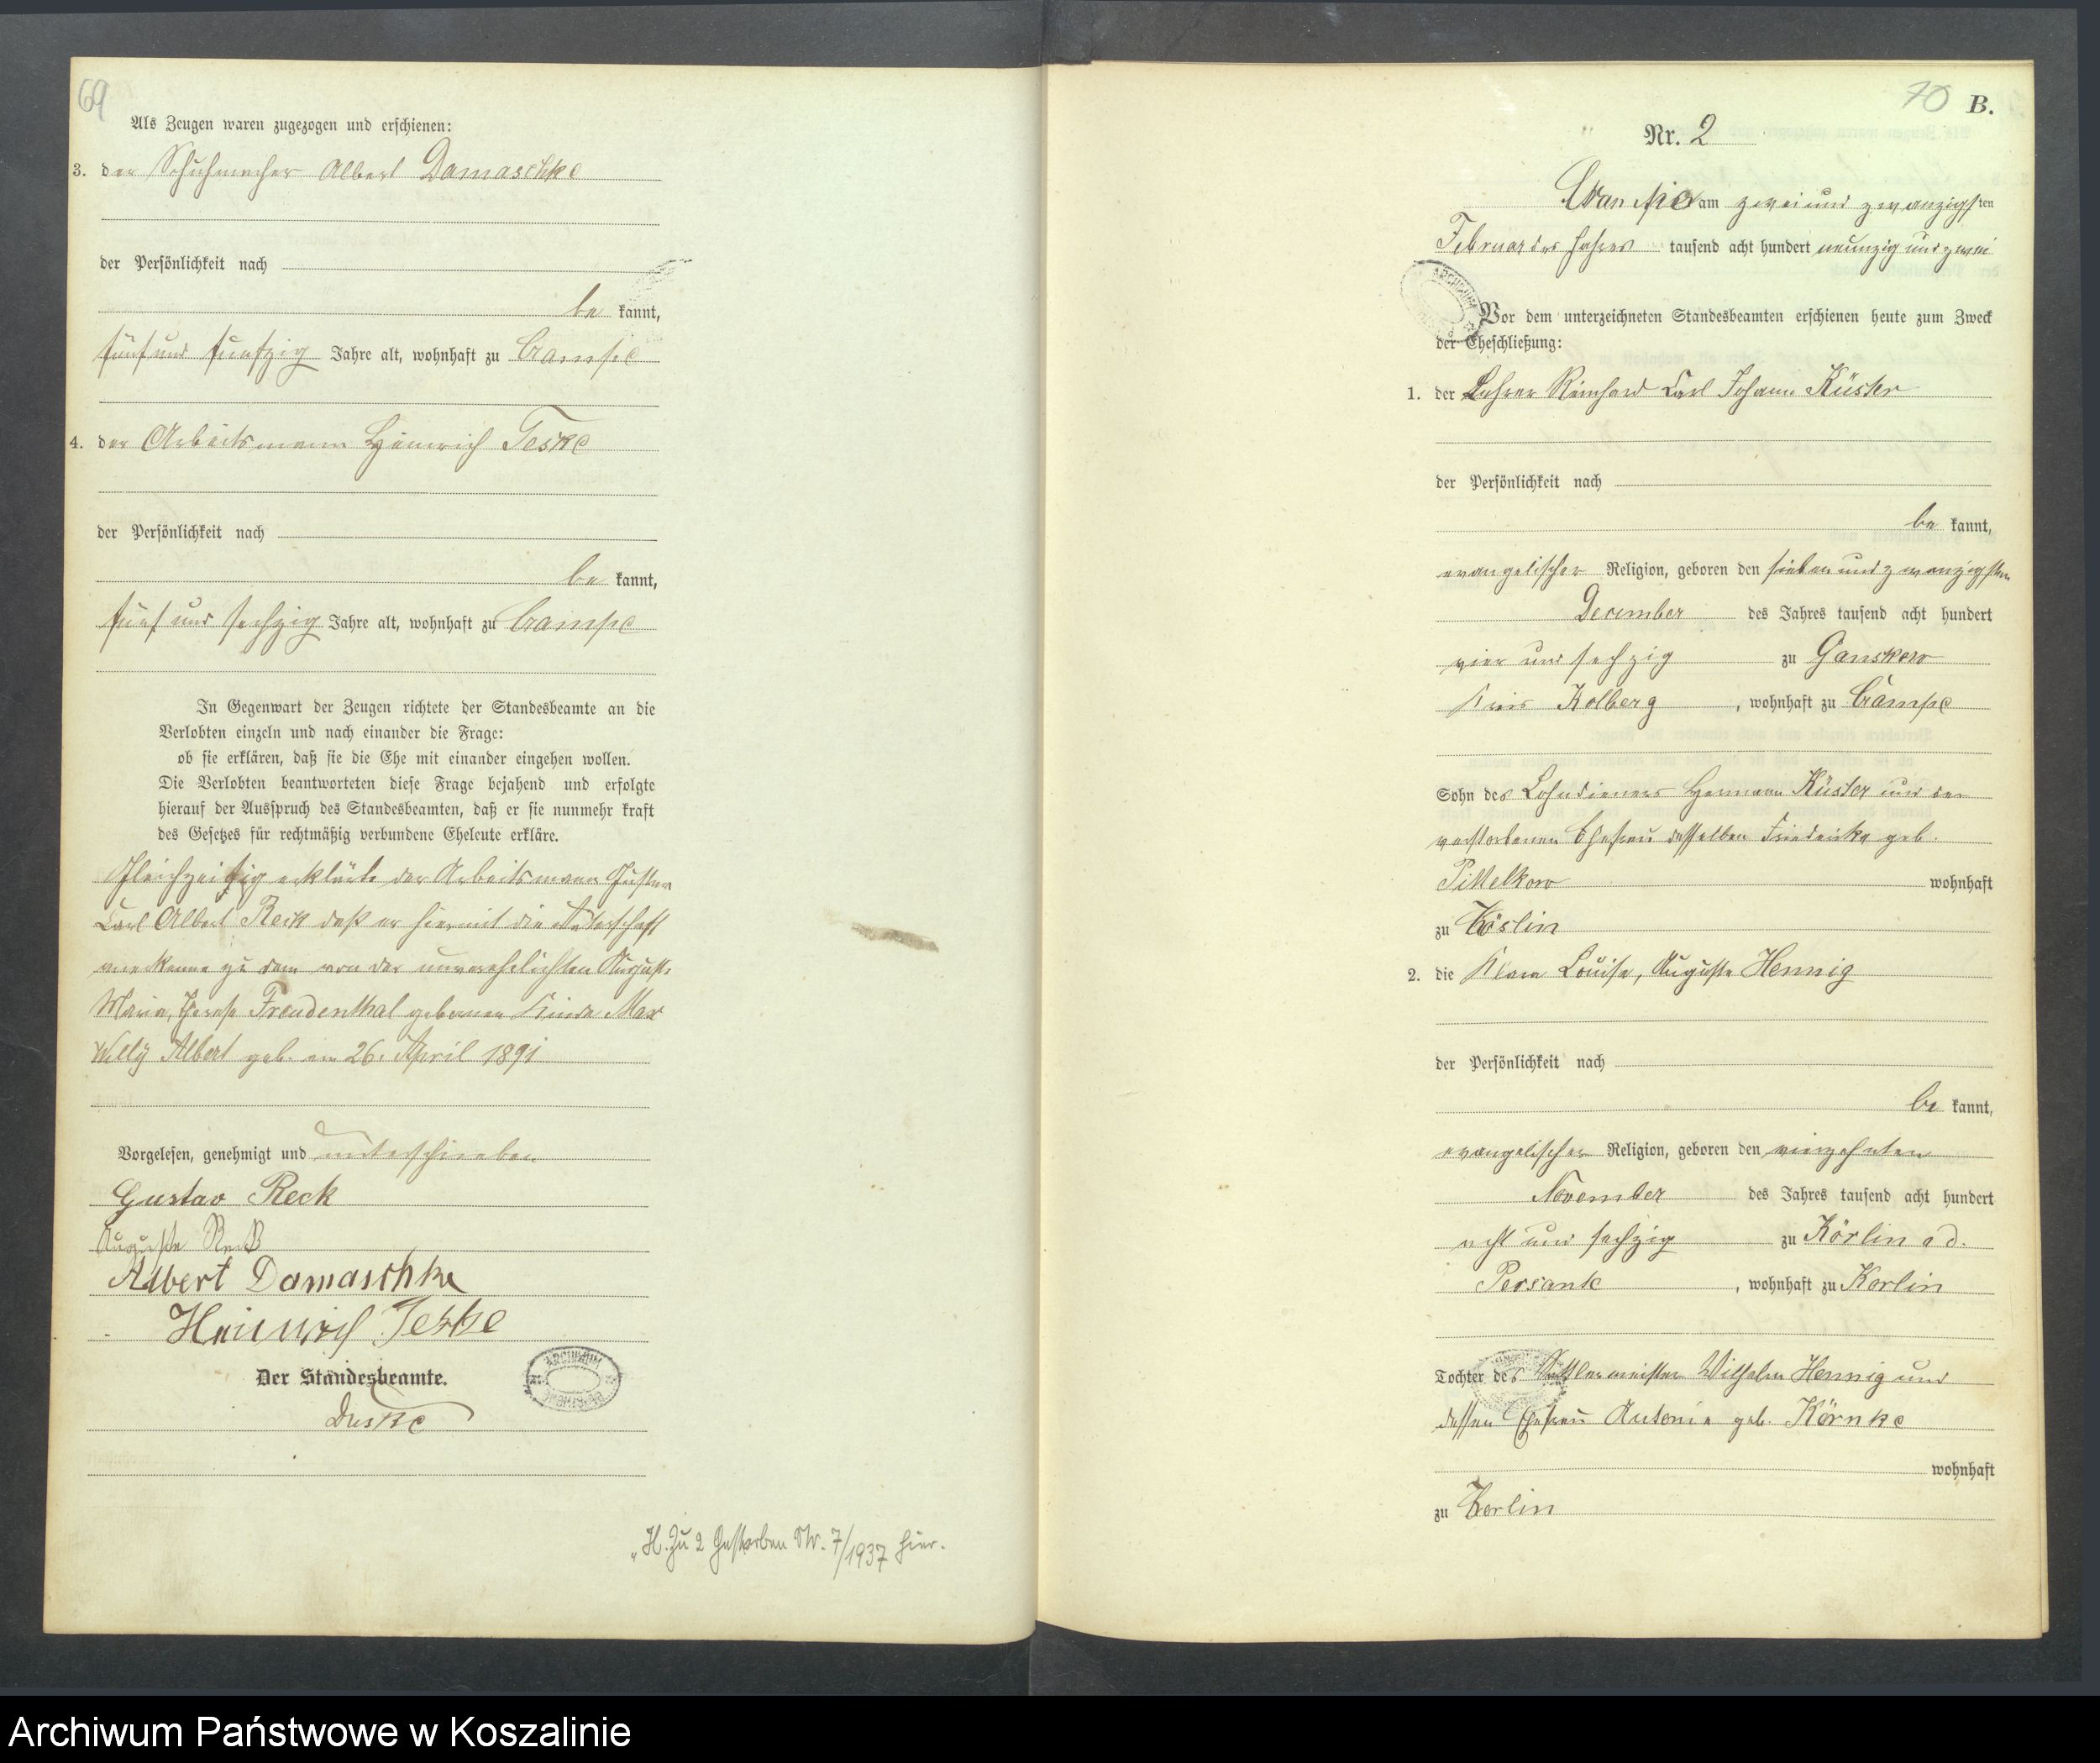 69
Als Zeugen waren zugezogen und erschienen:
3. der Schuhmacher Albert Damaschke
der Persönlichkeit nach
be kannt,
fünf und funfzig Jahre alt, wohnhaft zu Crampe
4. der Arbeitsmann Heinrich Teske
der Persönlichkeit nach
be kannt,
fünf und sechzig Jahre alt, wohnhaft zu Crampe
In Gegenwart der Zeugen richtete der Standesbeamte an die
Verlobten einzeln und nach einander die Frage:
ob sie erklären, daß sie die Ehe mit einander eingehen wollen.
Die Verlobten beantworteten diese Frage bejahend und erfolgte
hierauf der Ausspruch des Standesbeamten, daß er sie nunmehr kraft
des Gesetzes für rechtmäßig verbundene Eheleute erkläre.
Gleichzeitig erklärte der Arbeitsmann Gustav
Carl Albert Reck daß er hiermit die Vaterschaft
anerkenne zu dem von der unverehelichten Auguste
Maria, Therese Freudenthal geborenen Kinde Max
Willy Albert geb. am 26. April 1891
Vorgelesen, genehmigt und unterschrieben
Gustav Reck
Auguste Reck
Albert Damaschke
Heinrich Teske
Der Standesbeamte.
Duske
ARCHIWUM
H. zu 2 Gestorben Nr. 7/1937 hier.
70 B.
Nr. 2
Crampe am zwei und zwanzigsten
Februar des Jahres tausend acht hundert neunzig und zwei
ARCHIWUM
Vor dem unterzeichneten Standesbeamten erschienen heute zum Zweck
der Eheschließung:
1. der Lehrer Reinhard Carl Johann Küster
der Persönlichkeit nach
be kannt,
evangelischer Religion, geboren den sieben und zwanzigsten
December des Jahres tausend acht hundert
vier und sechzig zu Ganskow
Kreis Kolberg, wohnhaft zu Crampe
Sohn des Lohndieners Hermann Küster und der
verstorbenen Ehefrau desselben Friederike geb.
Pittelkow wohnhaft
zu Köslin
2. die Klara Louise, Auguste Hennig
der Persönlichkeit nach
be kannt,
evangelischer Religion, geboren den vierzehnten
November des Jahres tausend acht hundert
acht und sechzig zu Körlin a d.
Persante, wohnhaft zu Korlin
Tochter des Sattlermeister Wilhelm Hennig und
dessen Ehefrau Antonie geb. Körnke
wohnhaft
zu Korlin
Archiwum Państwowe w Koszalinie